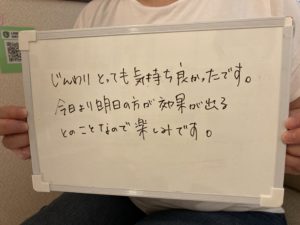 じんわりとっても気持ち良かったです。
今日より明日の方が効果が出る
とのことなので楽しみです。